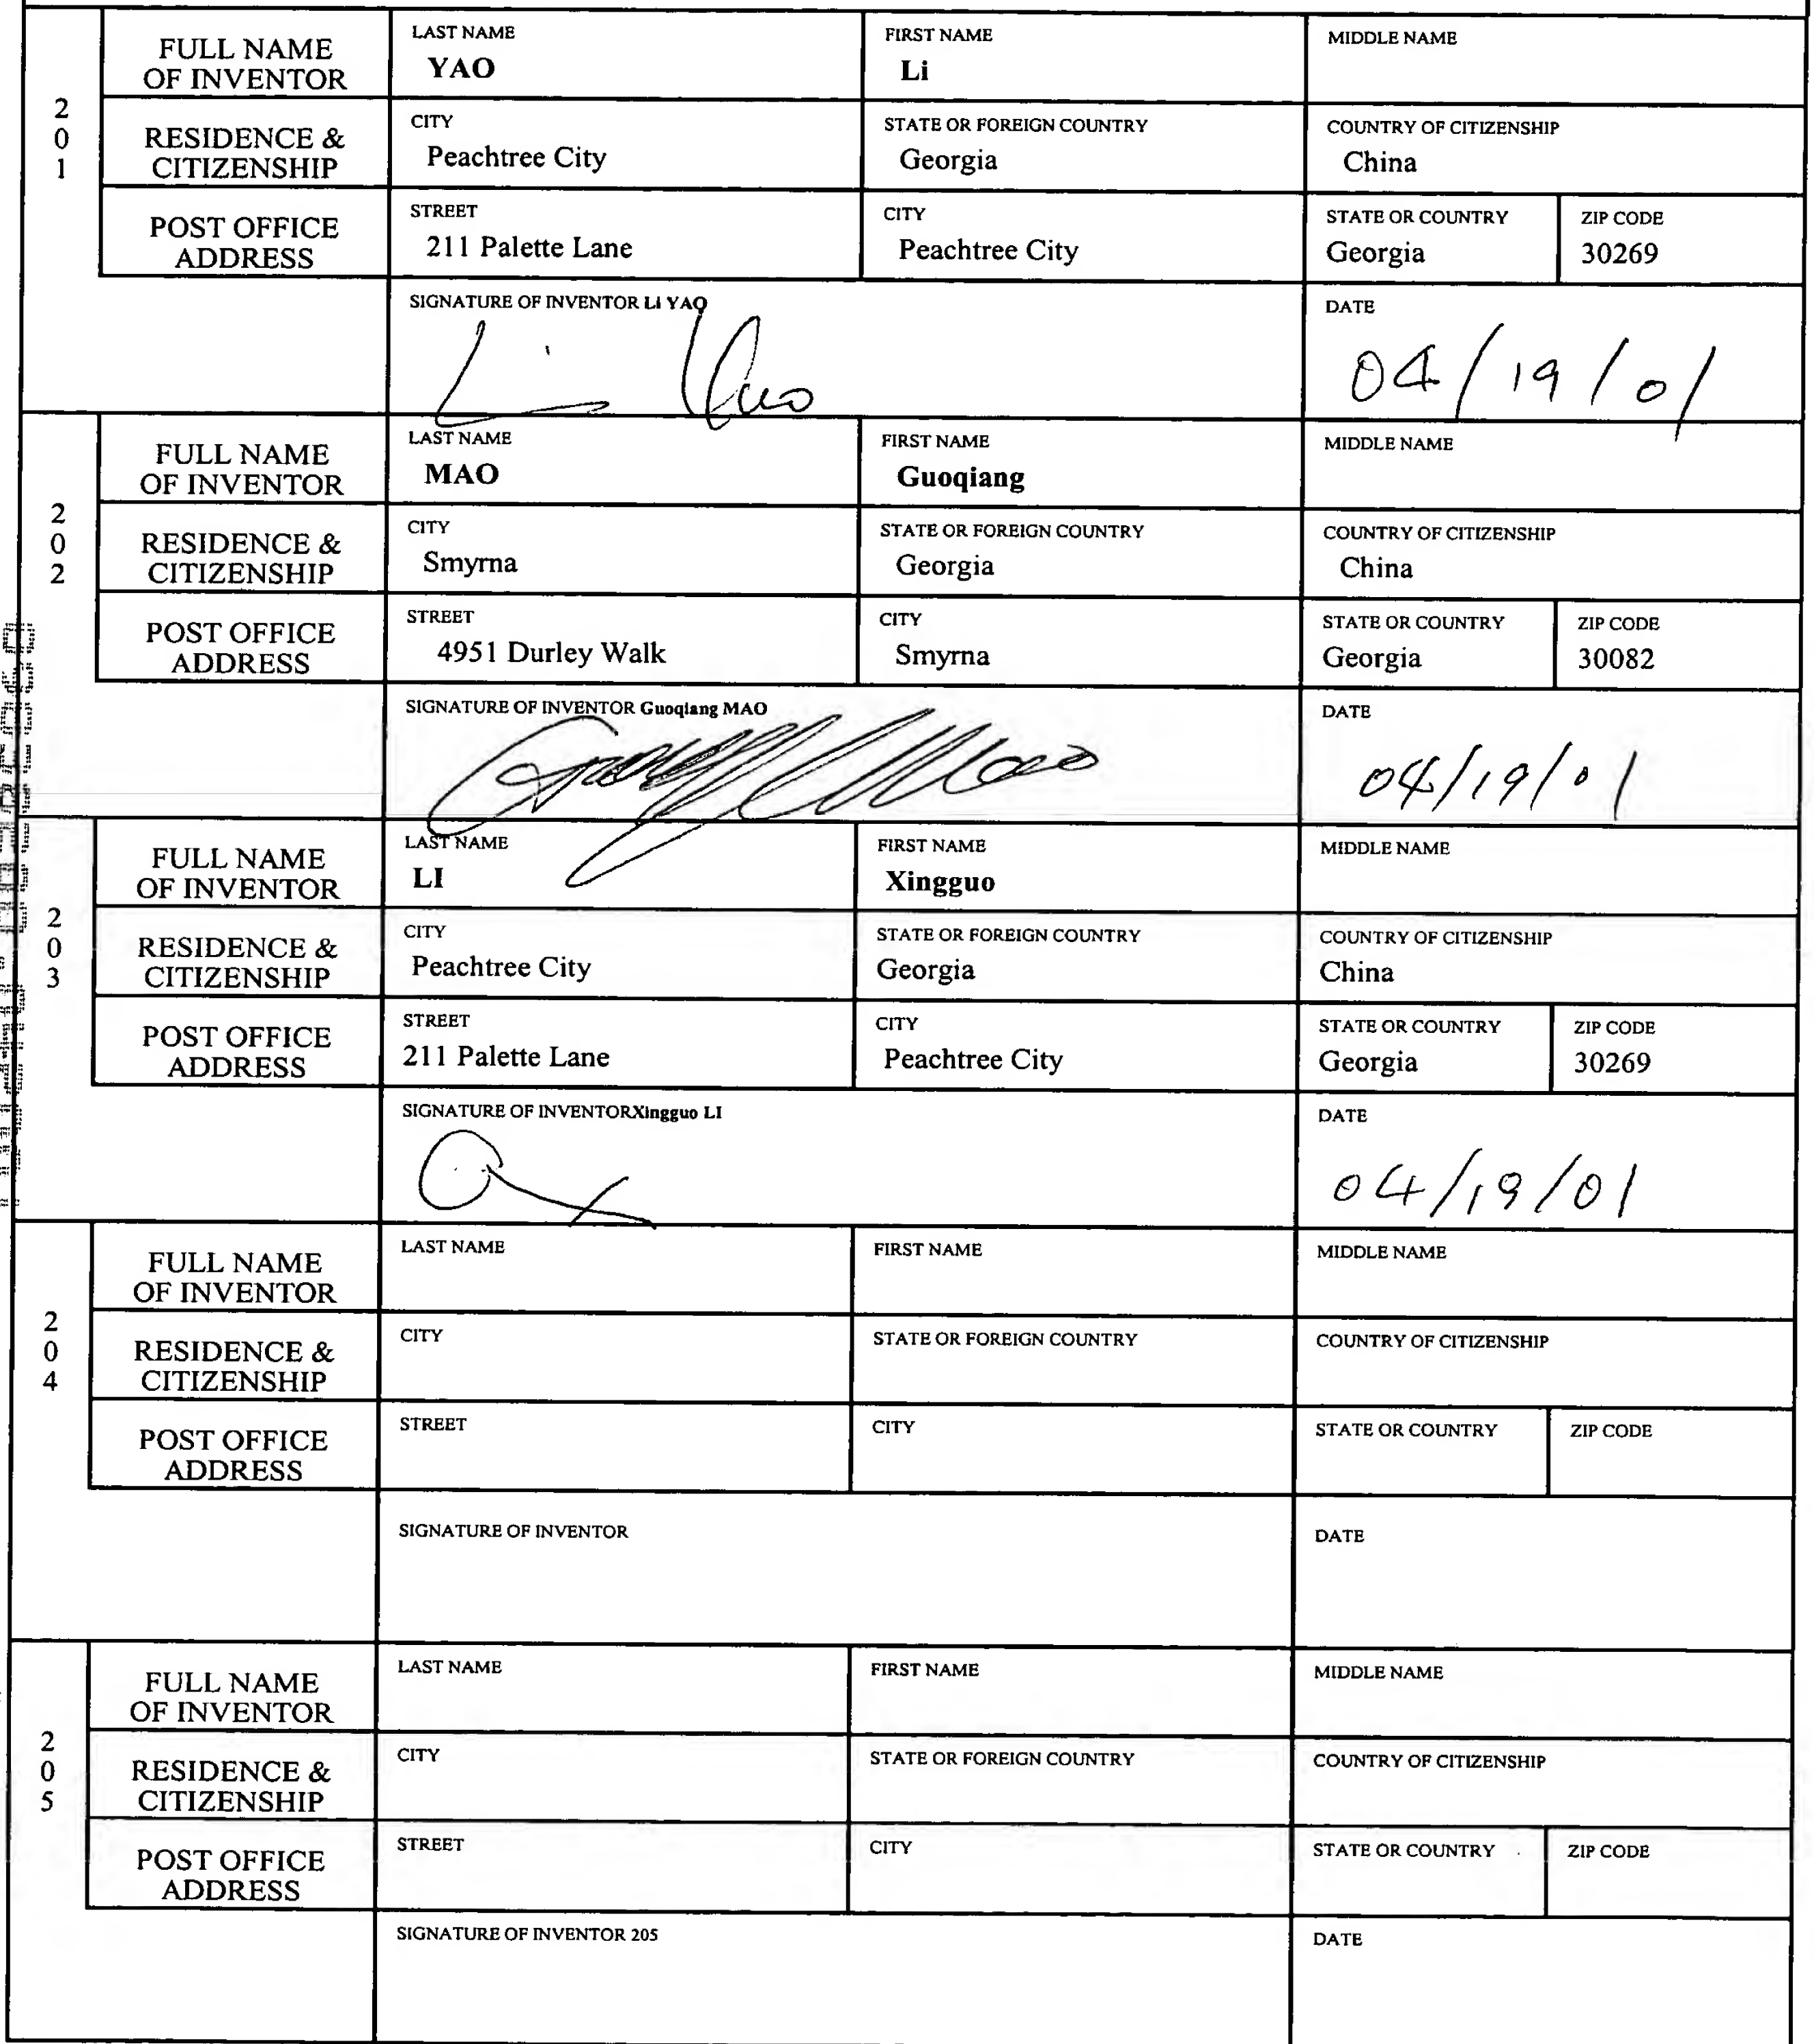 201
FULL NAME OF INVENTOR
LAST NAME
YAO
FIRST NAME
Li
MIDDLE NAME
RESIDENCE & CITIZENSHIP
CITY
Peachtree City
STATE OR FOREIGN COUNTRY
Georgia
COUNTRY OF CITIZENSHIP
China
POST OFFICE ADDRESS
STREET
211 Palette Lane
CITY
Peachtree City
STATE OR COUNTRY
Georgia
ZIP CODE
30269
SIGNATURE OF INVENTOR Li YAO
Li Yao
DATE
04/19/01
202
FULL NAME OF INVENTOR
LAST NAME
MAO
FIRST NAME
Guoqiang
MIDDLE NAME
RESIDENCE & CITIZENSHIP
CITY
Smyrna
STATE OR FOREIGN COUNTRY
Georgia
COUNTRY OF CITIZENSHIP
China
POST OFFICE ADDRESS
STREET
4951 Durley Walk
CITY
Smyrna
STATE OR COUNTRY
Georgia
ZIP CODE
30082
SIGNATURE OF INVENTOR Guoqiang MAO
DATE
04/19/01
203
FULL NAME OF INVENTOR
LAST NAME
LI
FIRST NAME
Xingguo
MIDDLE NAME
RESIDENCE & CITIZENSHIP
CITY
Peachtree City
STATE OR FOREIGN COUNTRY
Georgia
COUNTRY OF CITIZENSHIP
China
POST OFFICE ADDRESS
STREET
211 Palette Lane
CITY
Peachtree City
STATE OR COUNTRY
Georgia
ZIP CODE
30269
SIGNATURE OF INVENTORXingguo LI
DATE
04/19/01
204
FULL NAME OF INVENTOR
LAST NAME
FIRST NAME
MIDDLE NAME
RESIDENCE & CITIZENSHIP
CITY
STATE OR FOREIGN COUNTRY
COUNTRY OF CITIZENSHIP
POST OFFICE ADDRESS
STREET
CITY
STATE OR COUNTRY
ZIP CODE
SIGNATURE OF INVENTOR
DATE
205
FULL NAME OF INVENTOR
LAST NAME
FIRST NAME
MIDDLE NAME
RESIDENCE & CITIZENSHIP
CITY
STATE OR FOREIGN COUNTRY
COUNTRY OF CITIZENSHIP
POST OFFICE ADDRESS
STREET
CITY
STATE OR COUNTRY
ZIP CODE
SIGNATURE OF INVENTOR 205
DATE